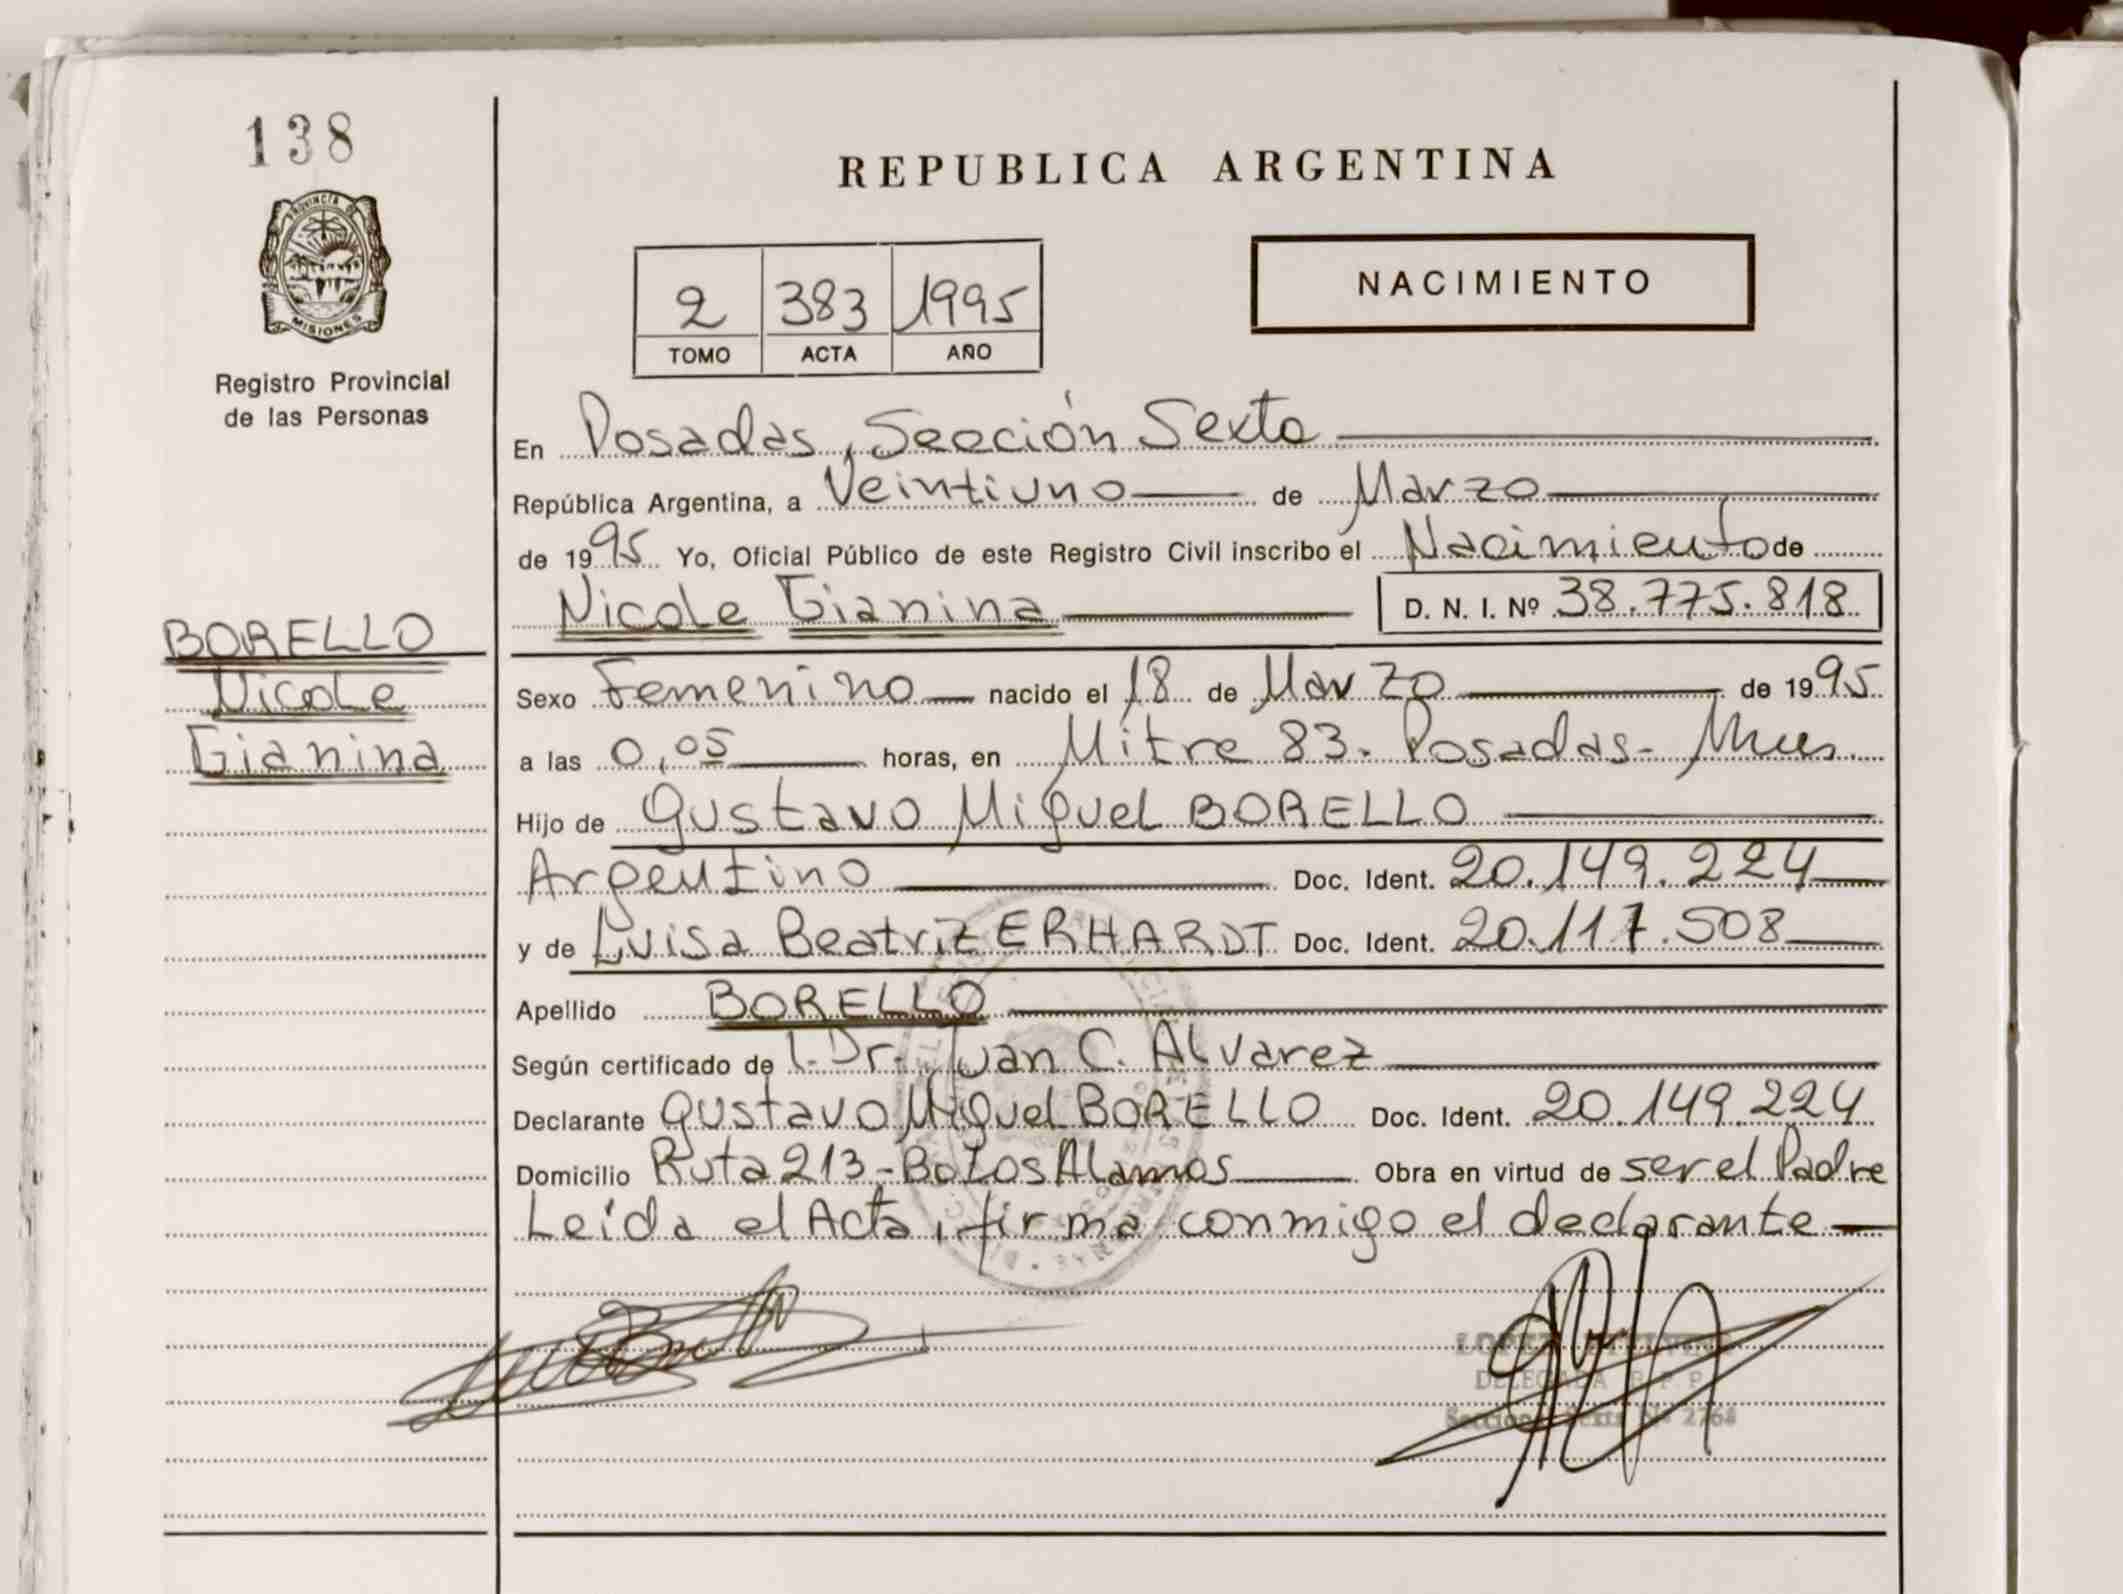 138
PROVINCIA DE
MISIONES
Registro Provincial
de las Personas
REPUBLICA ARGENTINA
2 383 1995
TOMO ACTA AÑO
NACIMIENTO
En Posadas, Sección Sexta
República Argentina, a Veintiuno de Marzo
de 1995 Yo, Oficial Público de este Registro Civil inscribo el Nacimiento de
Nicole Gianina D. N. I. Nº 38.775.818
BORELLO
Nicole
Gianina
Sexo Femenino nacido el 18 de Marzo de 1995
a las 0,05 horas, en Mitre 83. Posadas- Mnes.
Hijo de Gustavo Miguel BORELLO
Argentino Doc. Ident. 20.149.224
y de Luisa Beatriz ERHARDT Doc. Ident. 20.117.508
Apellido BORELLO
Según certificado de l. Dr. Juan C. Alvarez
Declarante Gustavo Miguel BORELLO Doc. Ident. 20.149.224
Domicilio Ruta 213-Bo Los Alamos Obra en virtud de ser el Padre
Leída el Acta, firma conmigo el declarante
LOPEZ
DELEGADA R P P
Sección Sexta Nº 2768